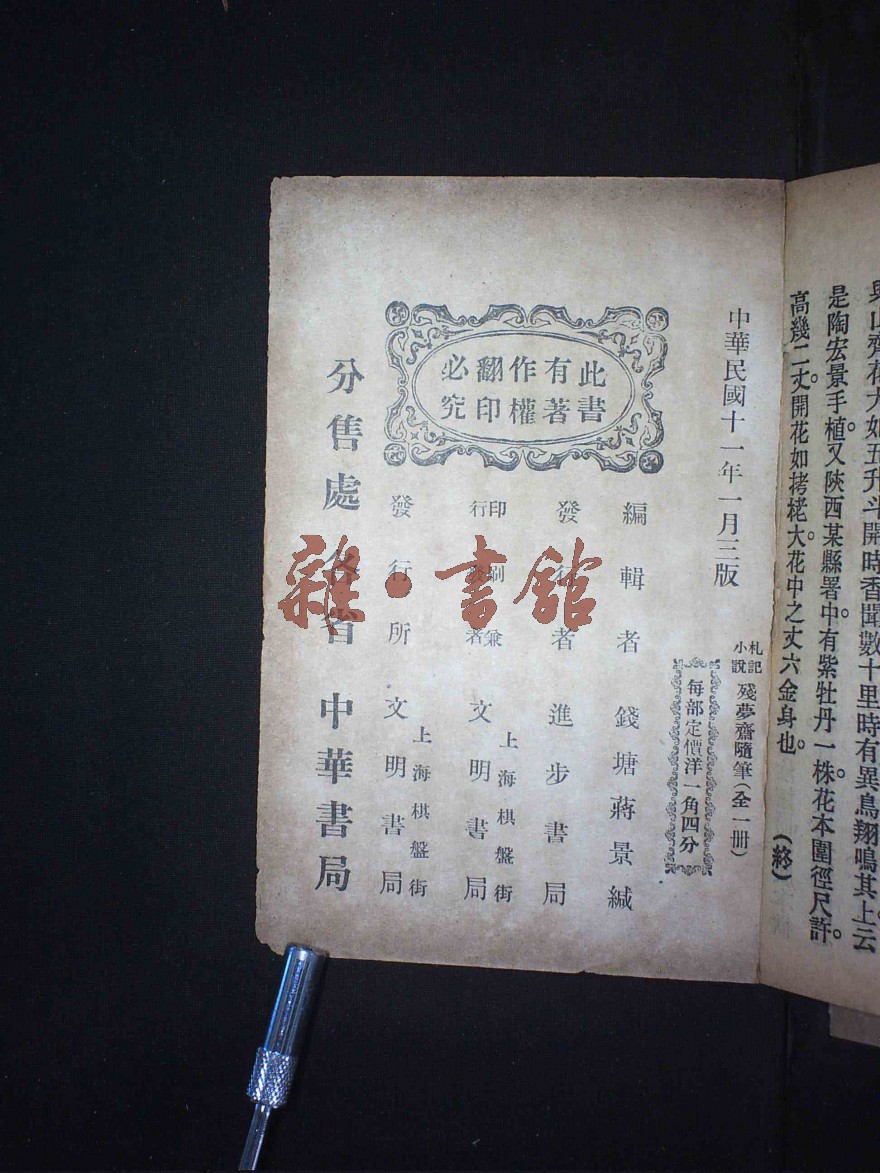 與山齊花大如五升斗開時香聞數十里時有異鳥翔鳴其上云
是陶宏景手植。又陝西某縣署中。有紫牡丹一株。花本圍徑尺許。
高幾二丈。開花如栲栳大。花中之丈六金身也。
(終)
中華民國十一年一月三版
札記小說 殘夢齋隨筆(全一册)
每部定價洋一角四分
此書有著作權翻印必究
編輯者 錢塘蔣景緘
發行者 進步書局
印刷兼發行者 上海棋盤街 文明書局
發行所 上海棋盤街 文明書局
分售處 各省 中華書局
雜·書館